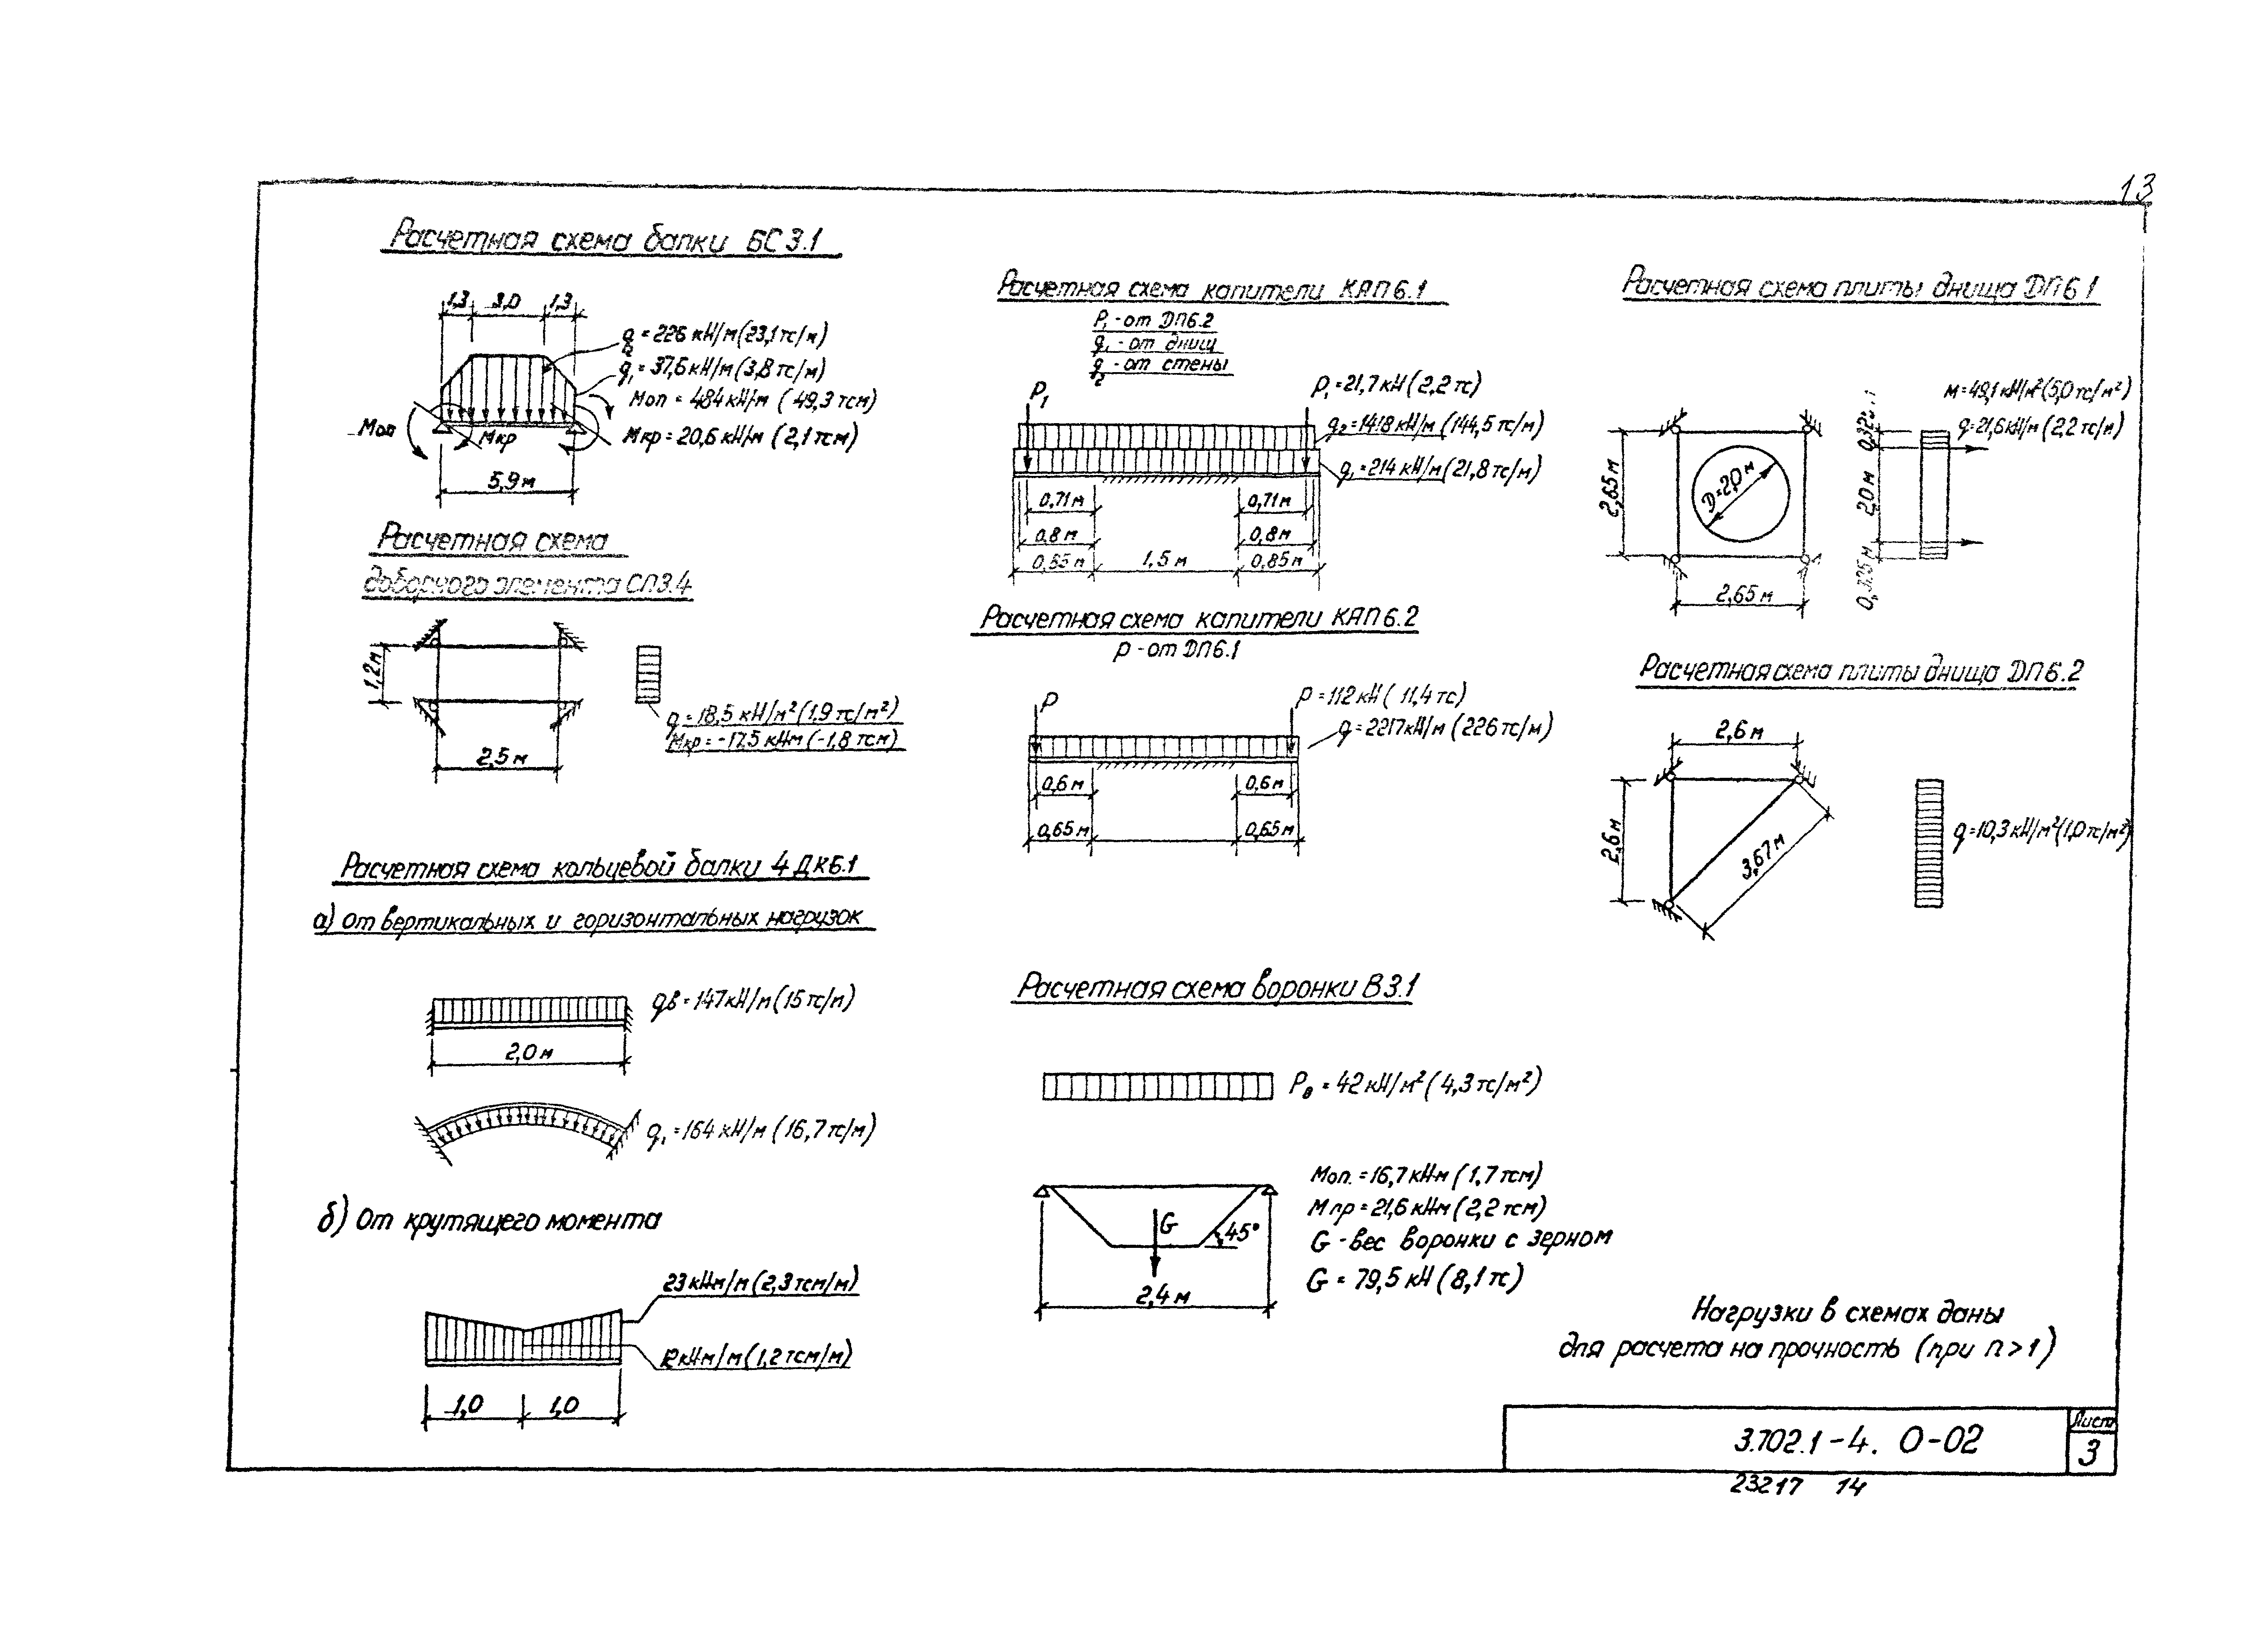 13
Расчетная схема балки БС 3.1
1,3 3,0 1,3
q₂ = 226 кН/м (23,1 тс/м)
q₁ = 37,6 кН/м (3,8 тс/м)
Mоп = 484 кН/м ( 49,3 тсм)
Mоп
Mкр
Mкр = 20,6 кН/м (2,1 тсм)
5,9 м
Расчетная схема
доборного элемента СП3.4
1,2 м
q = 18,5 кН/м² (1,9 тс/м²)
Mкр = -17,5 кНм (-1,8 тсм)
2,5 м
Расчетная схема кольцевой балки 4 ДКБ.1
а) от вертикальных и горизонтальных нагрузок
qв = 147 кН/м (15 тс/м)
2,0 м
q₁ = 164 кН/м (16,7 тс/м)
б) От крутящего момента
23 кНм/м (2,3 тсм/м)
12 кНм/м (1,2 тсм/м)
1,0 1,0
Расчетная схема капители КАП 6.1
P₁ - от ДП6.2
q₁ - от днищ
q₂ - от стены
P₁
P₁ = 21,7 кН (2,2 тс)
q₂ = 1418 кН/м (144,5 тс/м)
q₁ = 214 кН/м (21,8 тс/м)
0,71 м 0,71 м
0,8 м 0,8 м
0,85 м 1,5 м 0,85 м
Расчетная схема капители КАП 6.2
P - от ДП6.1
P
P = 112 кН ( 11,4 тс)
q = 2217 кН/м (226 тс/м)
0,6 м 0,6 м
0,65 м 0,65 м
Расчетная схема воронки В 3.1
Pв = 42 кН/м² (4,3 тс/м²)
G
45°
2,4 м
Mоп. = 16,7 кНм (1,7 тсм)
Mпр = 21,6 кНм (2,2 тсм)
G - вес воронки с зерном
G = 79,5 кН (8,1 тс)
Расчетная схема плиты днища ДП6.1
M = 49,1 кН/м² (5,0 тс/м²)
q = 21,6 кН/м (2,2 тс/м)
2,65 м
D = 2,0 м
2,0 м
2,65 м
Расчетная схема плиты днища ДП 6.2
2,6 м
2,6 м
3,67 м
q = 10,3 кН/м² (1,0 тс/м²)
Нагрузки в схемах даны
для расчета на прочность (при n > 1)
3.702.1-4. 0-02
Лист
3
23217 14